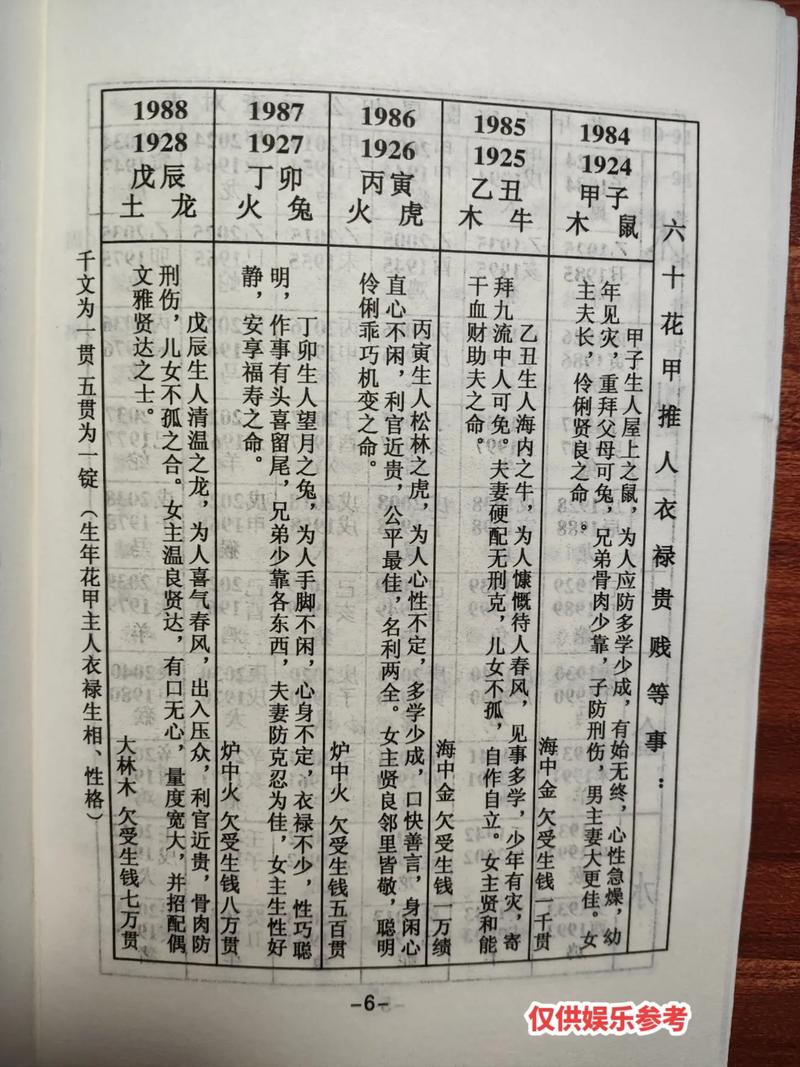 六十花甲推人衣禄贵贱等事：
1984
1924
甲子
木 鼠
甲子生人屋上之鼠，为人应防多学少成，有始无终，心性急燥，幼
年见灾，重拜父母可兔，兄弟骨肉少靠，子防刑伤，男主妻大更佳。女
主夫长，伶俐贤良之命。
海中金 欠受生钱一千贯
1985
1925
乙丑
木 牛
乙丑生人海内之牛，为人慷慨待人春风，见事多学，少年有灾，寄
拜九流中人可免。夫妻硬配无刑克，儿女不孤，自作自立。女主贤和能
干血财助夫之命。
海中金 欠受生钱一万绩
1986
1926
丙寅
火 虎
丙寅生人松林之虎，为人心性不定，多学少成，口快善言，身闲心
直心不闲，利官近贵，公平最佳，名利两全。女主贤良邻里皆敬，聪明
伶俐乖巧机变之命。
炉中火 欠受生钱五百贯
1987
1927
丁卯
火 兔
丁卯生人望月之兔，为人手脚不闲，心身不定，衣禄不少，性巧聪
明，作事有头喜留尾，兄弟少靠各东西，夫妻防克忍为佳，女主生性好
静，安享福寿之命。
炉中火 欠受生钱八万贯
1988
1928
戊辰
土 龙
戊辰生人清温之龙，为人喜气春风，出入压众，利官近贵，骨肉防
刑伤，儿女不孤之合。女主温良贤达，有口无心，量度宽大，并招配偶
文雅贤达之士。
大林木 欠受生钱七万贯
千文为一贯 五贯为一锭（生年花甲主人衣禄生相、性格）
-6-
仅供娱乐参考